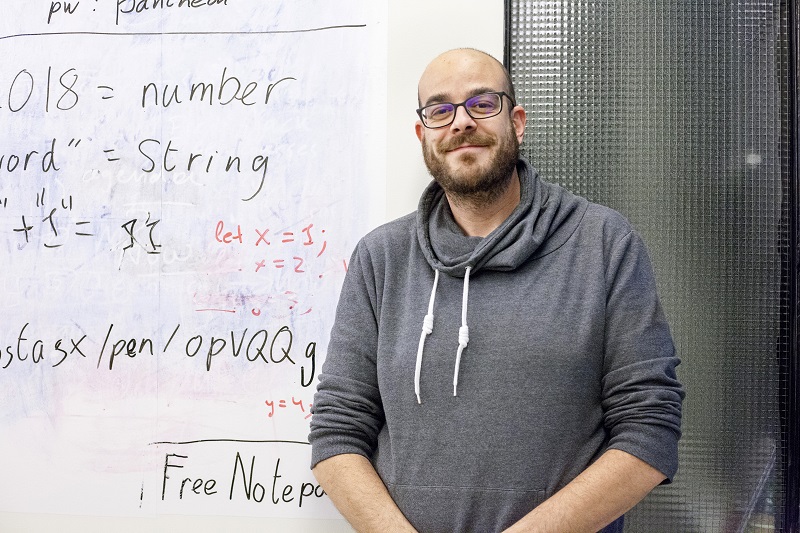 pw: pancheon
2018 = number
word" = String
"+"1" = 11
let x = 1;
x = 2
stasx/pen/opVQQg
y = 4;
Free Notepa